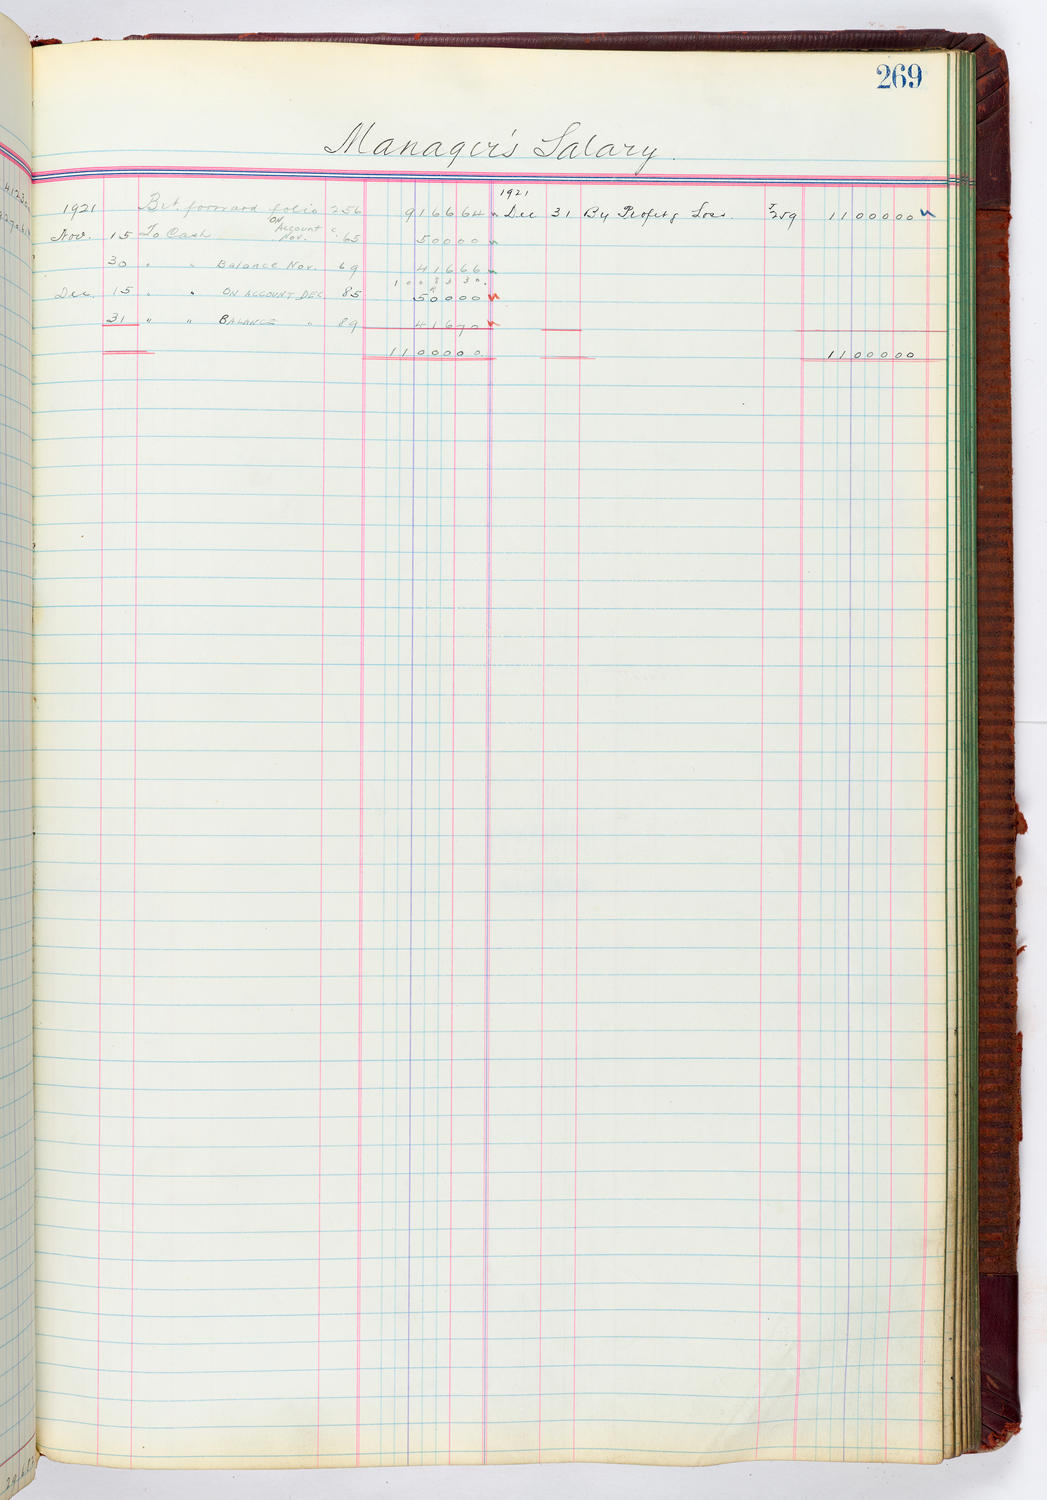 269
Manager's Salary.
1921
1921 Brt. forward folio 256 916664 Dec 31 By Profit & Loss. J 259 1100000
Nov. 15 To Cash on Account Nov. C 65 50000
30 " " Balance Nov. 69 41666
1008330
Dec. 15 " " ON ACCOUNT DEC. 85 50000
31 " " BALANCE " 89 41670
1100000 1100000